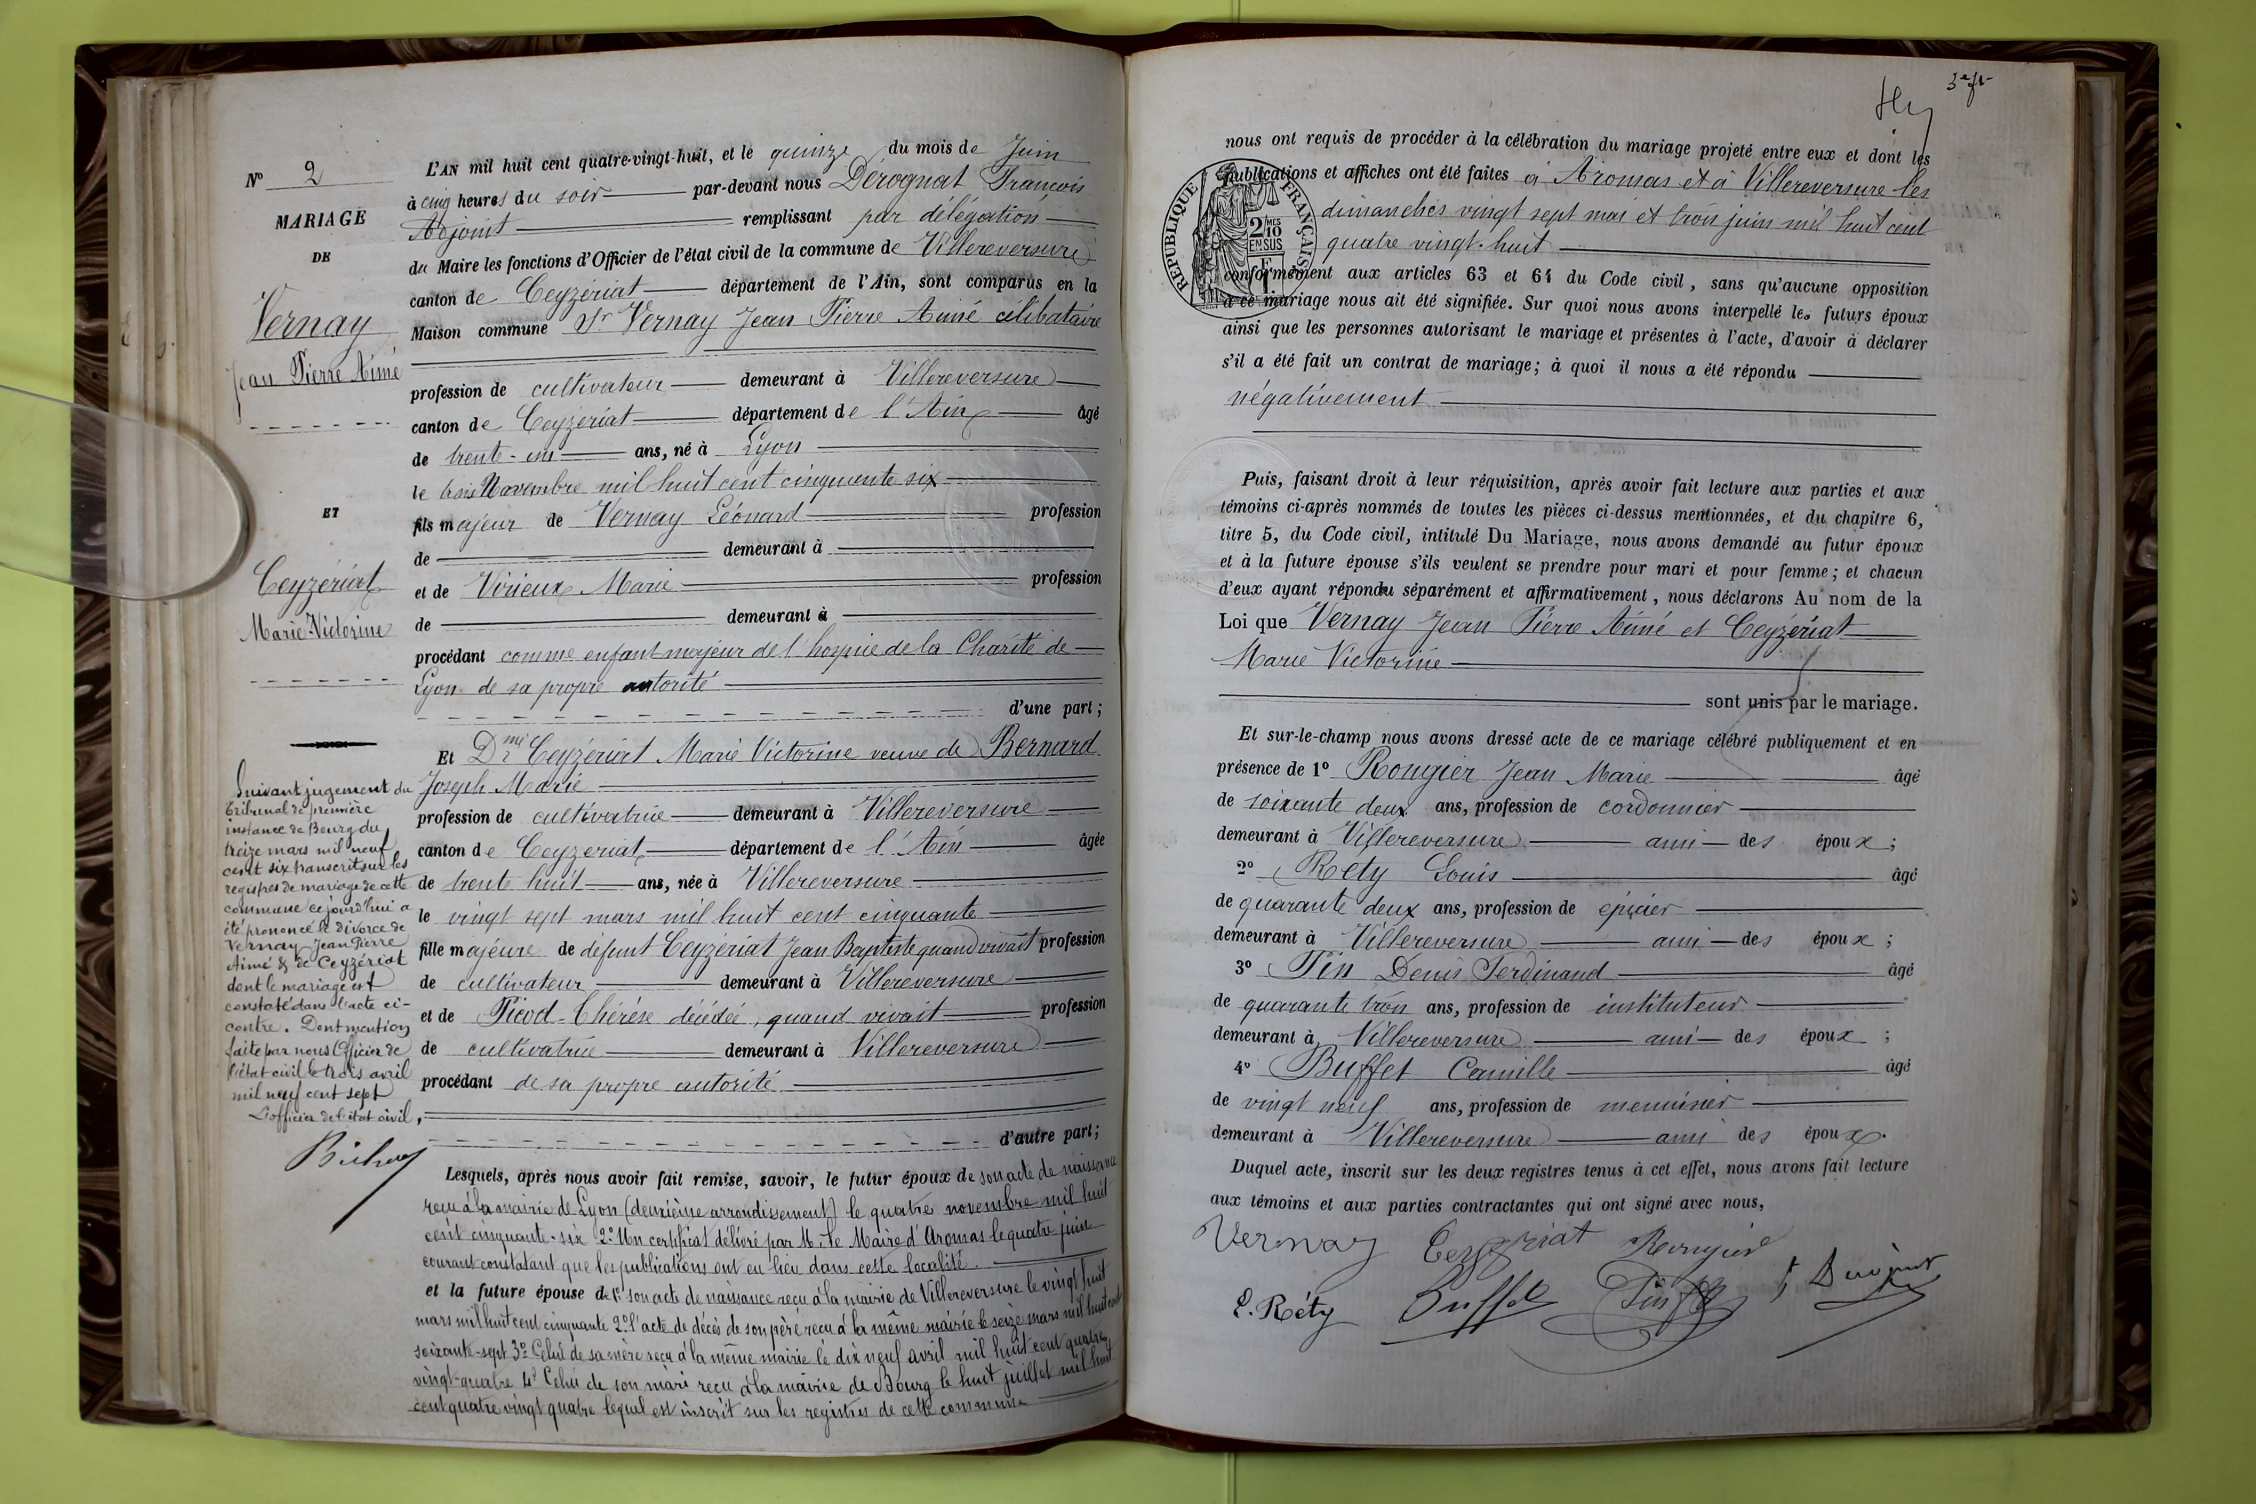 N° 2
MARIAGE
DE
Vernay
Jean Pierre Aimé
ET
Ceyzériat
Marie-Victorine
Suivant jugement du
tribunal de première
instance de Bourg du
treize mars mil neuf
cent six transcrit sur les
registres de mariage de cette
commune cejourd'hui a
été prononcé le divorce de
Vernay Jean Pierre
Aimé & de Ceyzériat
dont le mariage est
constaté dans l'acte ci-
contre. Dont mention
faite par nous Officier de
l'état civil le trois avril
mil neuf cent sept
L'officier de l'état civil,
L'AN mil huit cent quatre-vingt-huit, et le quinze du mois de Juin
à cinq heures du soir par-devant nous Dérognat François
Adjoint remplissant par délégation
du Maire les fonctions d'Officier de l'état civil de la commune de Villereversure
canton de Ceyzériat département de l'Ain, sont comparus en la
Maison commune Sr Vernay Jean Pierre Aimé célibataire
profession de cultivateur demeurant à Villereversure
canton de Ceyzériat département de l'Ain âgé
de trente-un ans, né à Lyon
le trois Novembre mil huit cent cinquante six
fils majeur de Vernay Léonard profession
de demeurant à
et de Virieux Marie profession
de demeurant à
procédant comme enfant majeur de l'hospice de la Charité de
Lyon de sa propre autorité
d'une part;
Et Dme Ceyzériat Marie Victorine veuve de Bernard
Joseph Marie
profession de cultivatrice demeurant à Villereversure
canton de Ceyzériat département de l'Ain âgée
de trente huit ans, née à Villereversure
le vingt sept mars mil huit cent cinquante
fille majeure de défunt Ceyzériat Jean Baptiste quand vivait profession
de cultivateur demeurant à Villereversure
et de Piévd Thérèse décédée, quand vivait profession
de cultivatrice demeurant à Villereversure
procédant de sa propre autorité
d'autre part;
Lesquels, après nous avoir fait remise, savoir, le futur époux de son acte de naissance
reçu à la mairie de Lyon (deuxième arrondissement) le quatre novembre mil huit
cent cinquante-six 2° Un certificat délivré par M. le Maire d'Aromas le quatre juin
courant constatant que les publications ont eu lieu dans cette localité.
et la future épouse de 1° son acte de naissance reçu à la mairie de Villereversure le vingt huit
mars mil huit cent cinquante 2° l'acte de décès de son père reçu à la même mairie le seize mars mil huit cent
soixante-sept 3° Celui de sa mère reçu à la même mairie le dix neuf avril mil huit cent quatre
vingt-quatre 4° Celui de son mari reçu à la mairie de Bourg le huit juillet mil huit
cent quatre vingt quatre lequel est inscrit sur les registres de cette commune
nous ont requis de procéder à la célébration du mariage projeté entre eux et dont les
publications et affiches ont été faites à Aromas et à Villereversure les
dimanches vingt sept mai et trois juin mil huit cent
quatre vingt-huit
RÉPUBLIQUE FRANÇAISE
2/10 EN SUS
conformément aux articles 63 et 64 du Code civil, sans qu'aucune opposition
à ce mariage nous ait été signifiée. Sur quoi nous avons interpellé les futurs époux
ainsi que les personnes autorisant le mariage et présentes à l'acte, d'avoir à déclarer
s'il a été fait un contrat de mariage; à quoi il nous a été répondu
négativement
Puis, faisant droit à leur réquisition, après avoir fait lecture aux parties et aux
témoins ci-après nommés de toutes les pièces ci-dessus mentionnées, et du chapitre 6,
titre 5, du Code civil, intitulé Du Mariage, nous avons demandé au futur époux
et à la future épouse s'ils veulent se prendre pour mari et pour femme; et chacun
d'eux ayant répondu séparément et affirmativement, nous déclarons Au nom de la
Loi que Vernay Jean Pierre Aimé et Ceyzériat
Marie Victorine
sont unis par le mariage.
Et sur-le-champ nous avons dressé acte de ce mariage célébré publiquement et en
présence de 1° Rougier Jean Marie âgé
de soixante deux ans, profession de cordonnier
demeurant à Villereversure ami des époux;
2° Réty Louis âgé
de quarante deux ans, profession de épicier
demeurant à Villereversure ami des époux;
3° Pin Denis Ferdinand âgé
de quarante trois ans, profession de instituteur
demeurant à Villereversure ami des époux;
4° Buffet Camille âgé
de vingt neuf ans, profession de menuisier
demeurant à Villereversure ami des époux.
Duquel acte, inscrit sur les deux registres tenus à cet effet, nous avons fait lecture
aux témoins et aux parties contractantes qui ont signé avec nous,
Vernay Ceyzériat Rougier
L. Réty Buffet Pin